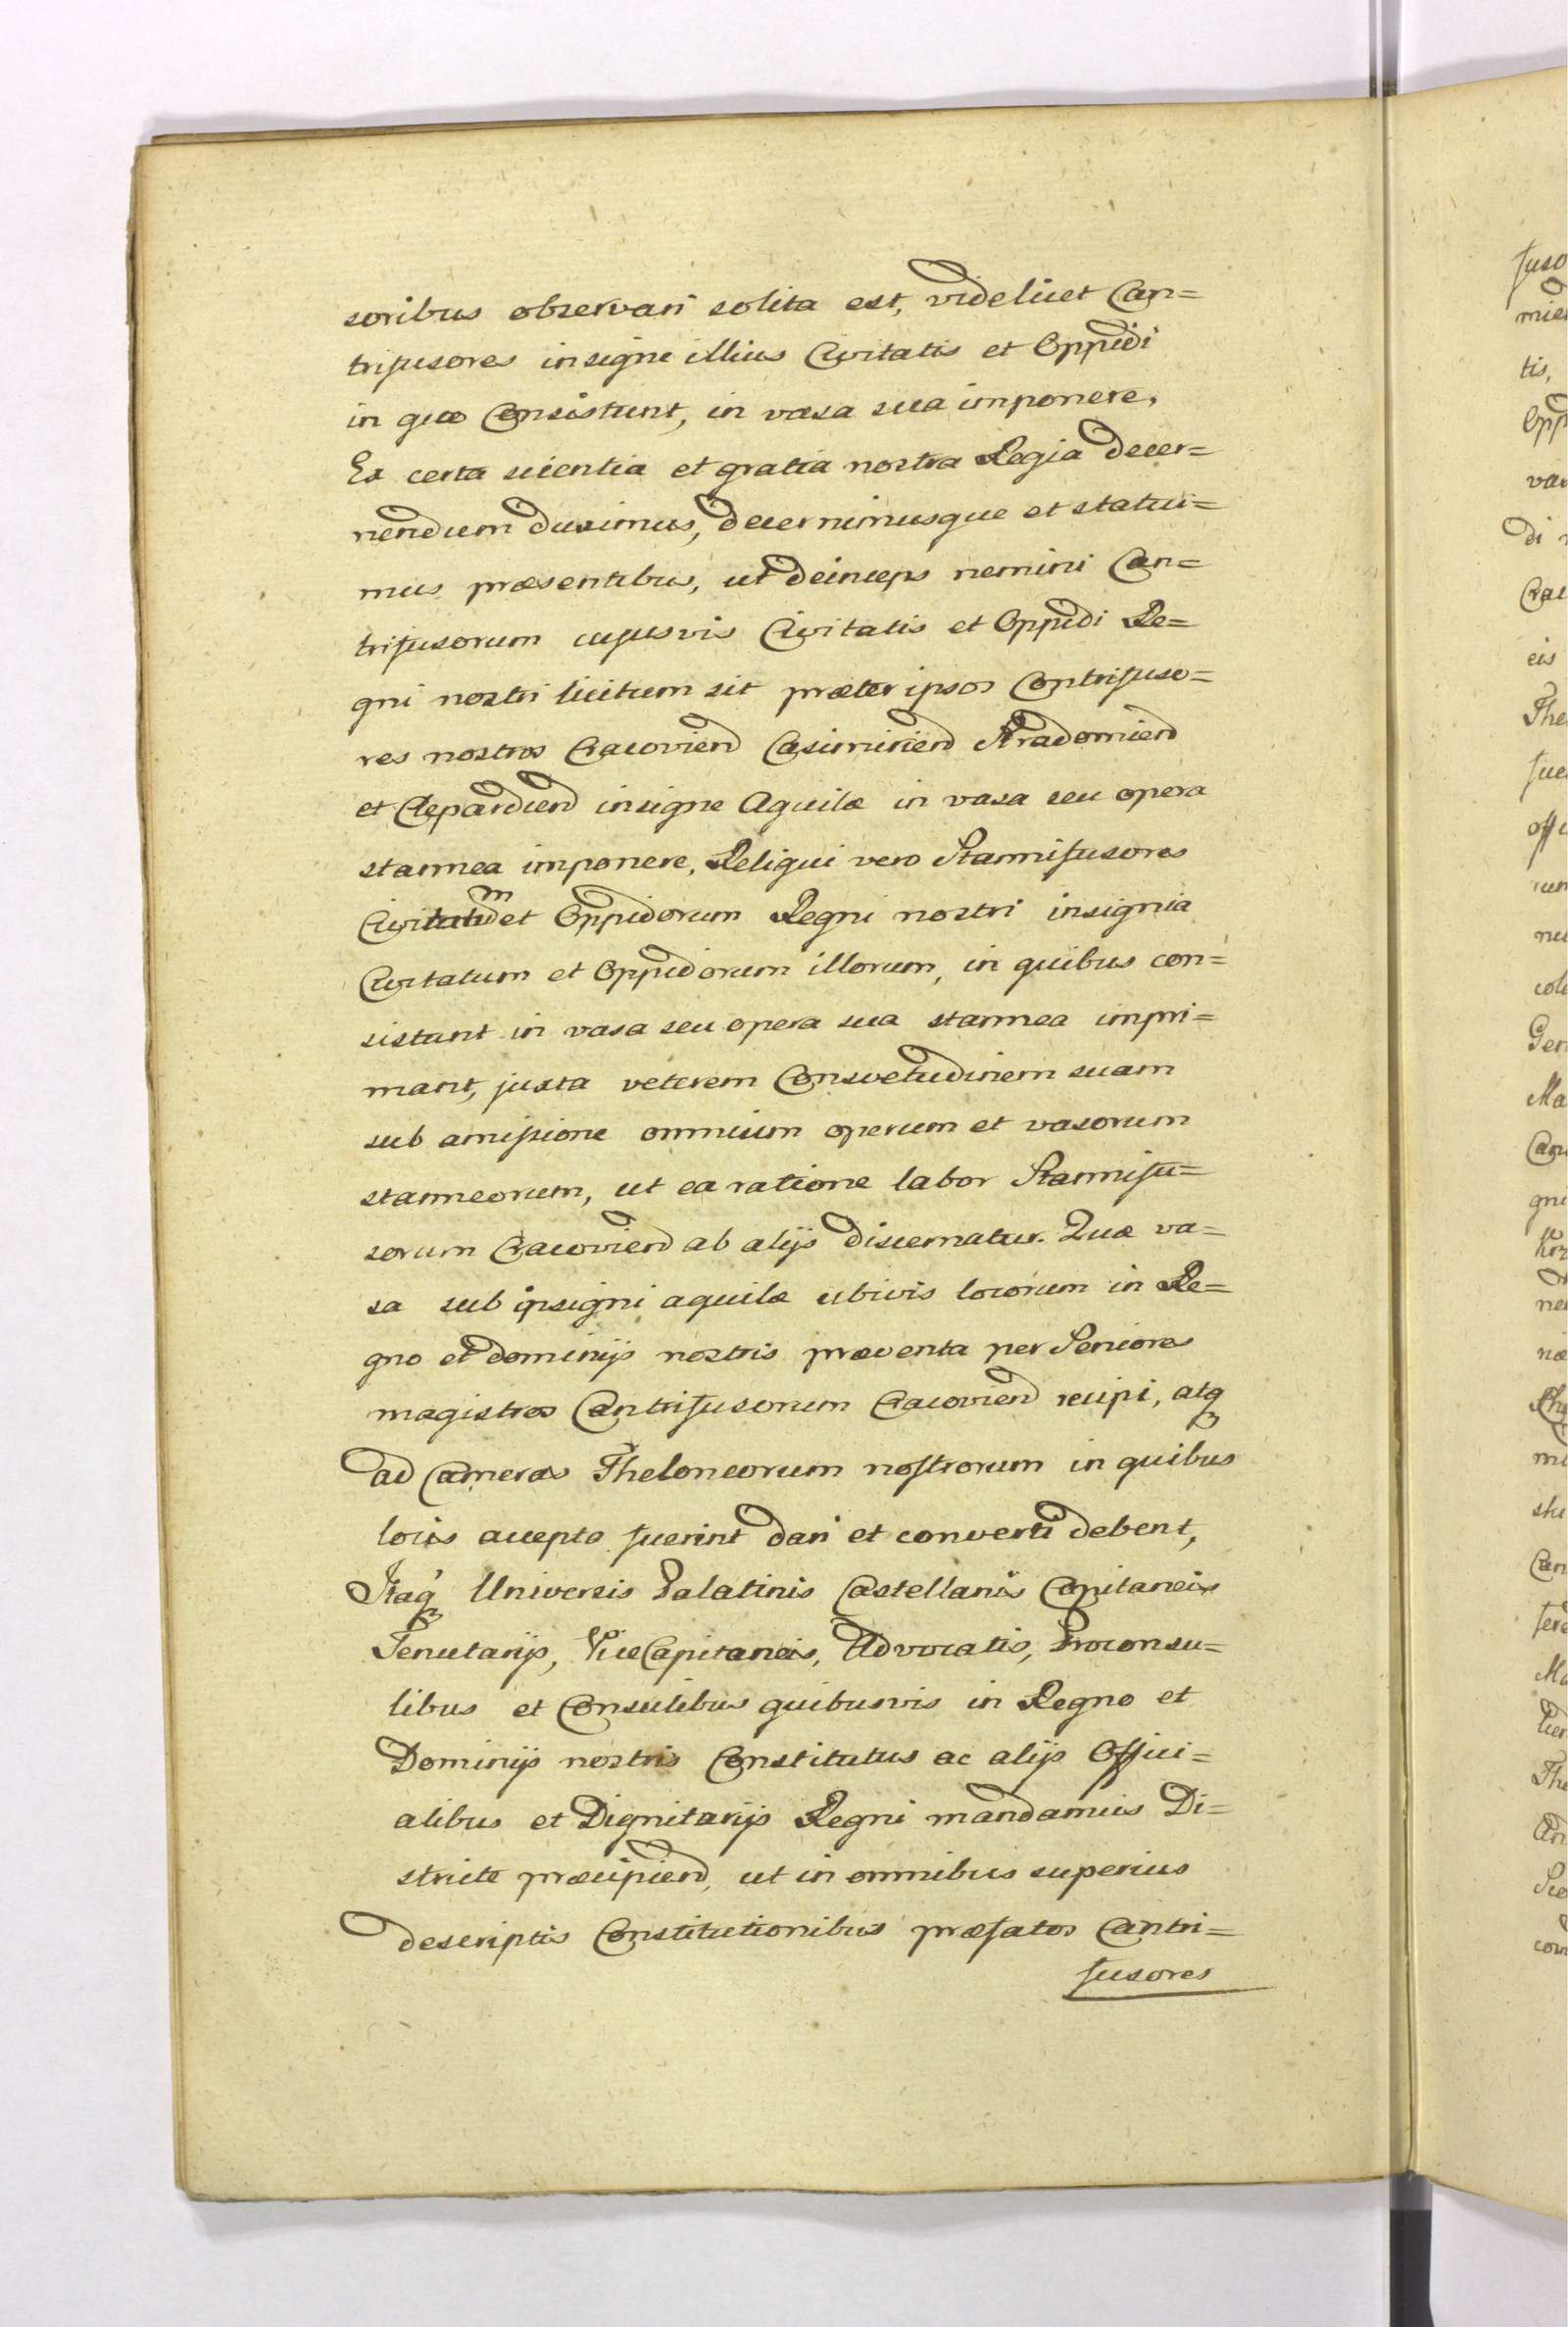 soribus observari solita est, videlicet Can=
trifusores insigne illius Civitatis et Oppidi
in quo Consistunt, in vasa sua imponere,
Ex certa scientia et gratia nostra Regia decer=
nendum duximus, decernimusque et statui=
mus præsentibus, ut deinceps nemini Can=
trifusorum cujusvis Civitatis et Oppidi Re=
gni nostri licitum sit præter ipsos Contrifuso=
res nostros Cracoviens Casimiriens Stradomiens
et Clepardiens insigne Aquilæ in vasa seu opera
stannea imponere, Reliqui vero Stannifusores
Civitatum et Oppidorum Regni nostri insignia
Civitatum et Oppidorum illorum, in quibus con=
sistunt in vasa seu opera sua stannea impri=
mant, juxta veterem Consvetudinem suam
sub amissione omnium operum et vasorum
stanneorum, ut ea ratione labor Stannifu=
sorum Cracoviens ab alijs discernatur. Quæ va=
sa sub insigni aquilæ ubivis locorum in Re=
gno et dominijs nostris præventa per Seniores
magistros Cantrifusorum Cracoviens recipi, atq
ad Cameras Theloneorum nostrorum in quibus
locis accepta fuerint dari et converti debent,
Itaq Universis Palatinis Castellanis Capitaneis
Tenutarijs, ViceCapitaneis, Advocatis, Proconsu=
libus et Consulibus quibusvis in Regno et
Dominijs nostris Constitutus ac alijs Offici=
alibus et Dignitarijs Regni mandamus Di=
stricte præcipiens, ut in omnibus superius
descriptis Constitutionibus præfatos Cantri=
fusores